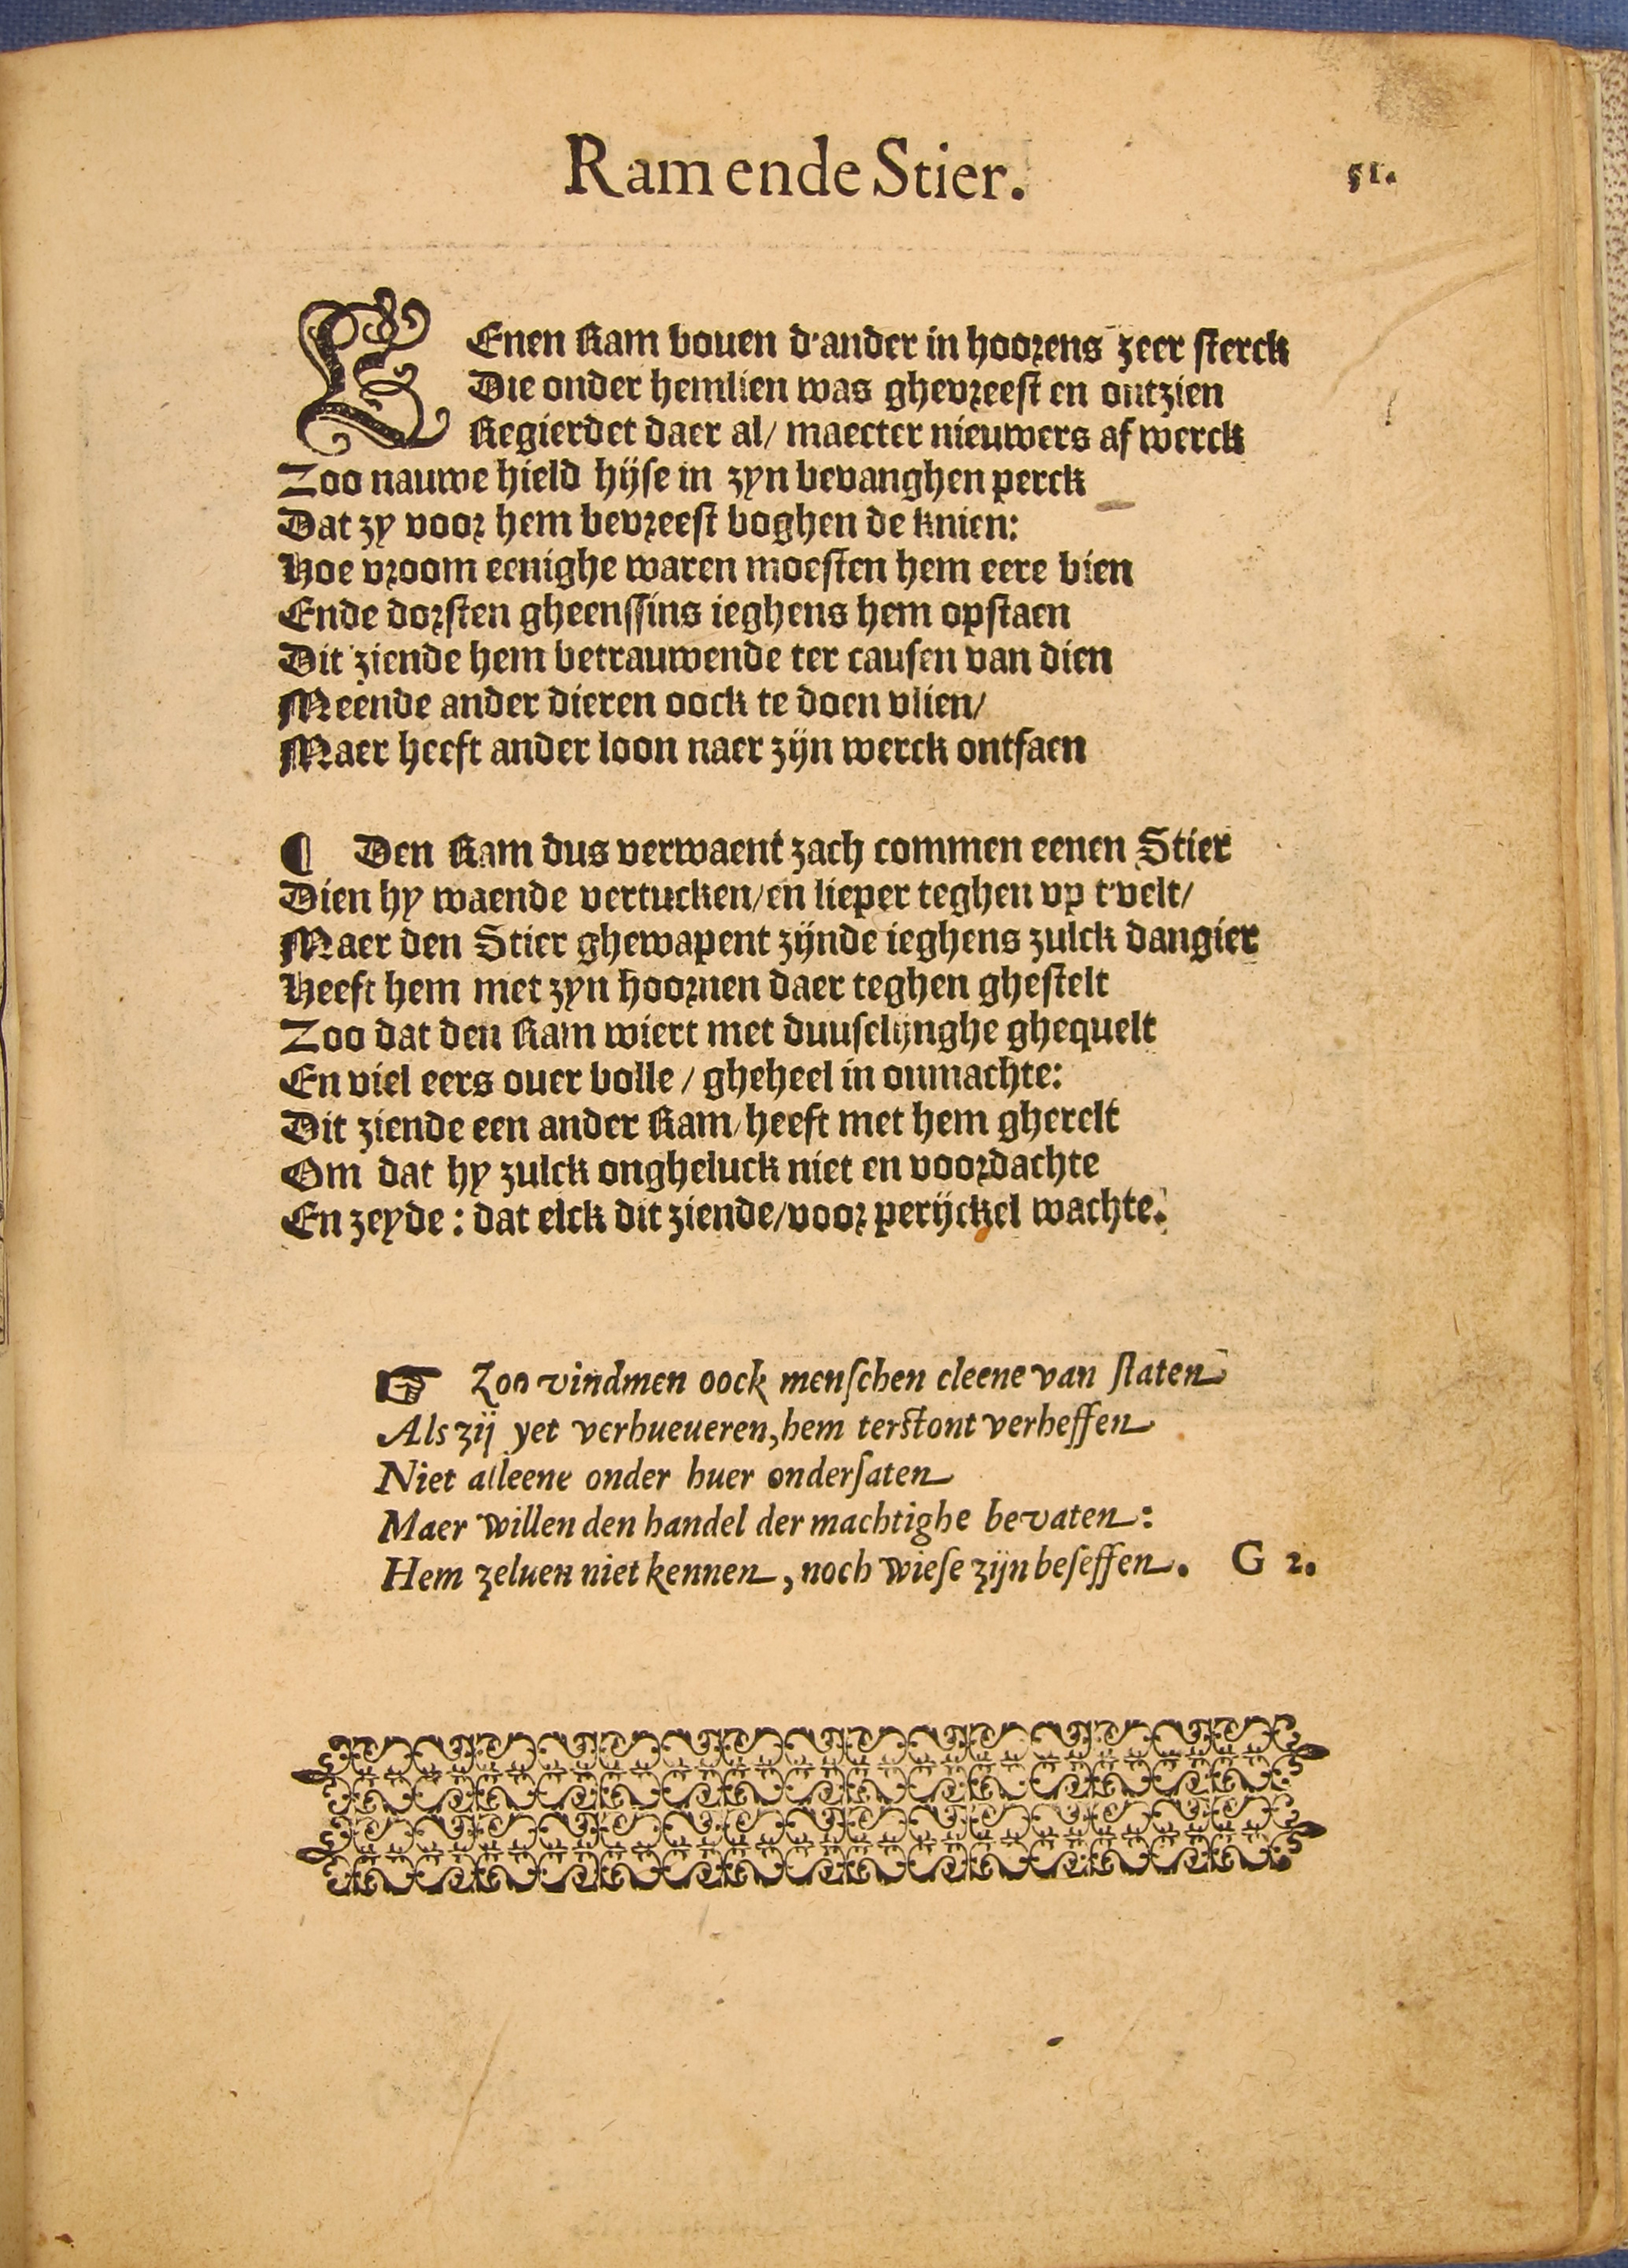 Ram ende Stier. 51.
EEnen Ram bouen d'ander in hoorens zeer sterck
Die onder hemlien was ghevreest en ontzien
Regierdet daer al/ maecter nieuwers af werck
Zoo nauwe hield hijse in zyn bevanghen perck
Dat zy voor hem bevreest boghen de knien:
Hoe vroom eenighe waren moesten hem eere bien
Ende dorsten gheenssins ieghens hem opstaen
Dit ziende hem betrauwende ter causen van dien
Meende ander dieren oock te doen vlien/
Maer heeft ander loon naer zijn werck ontfaen
¶ Den Ram dus verwaent zach commen eenen Stier
Dien hy waende vertucken/en lieper teghen vp t'velt/
Maer den Stier ghewapent zijnde ieghens zulck dangier
Heeft hem met zyn hoornen daer teghen ghestelt
Zoo dat den Ram wiert met duuselijnghe ghequelt
En viel eers ouer bolle / gheheel in onmachte:
Dit ziende een ander Ram/heeft met hem gherelt
Om dat hy zulck ongheluck niet en voordachte
En zeyde: dat elck dit ziende/voor perijckel wachte.
☞ Zoo vindmen oock menschen cleene van staten
Als zij yet verhueueren, hem terstont verheffen
Niet alleene onder huer ondersaten
Maer willen den handel der machtighe bevaten:
Hem zeluen niet kennen, noch wiese zijn beseffen. G 2.